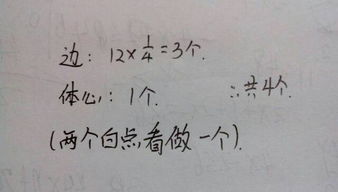 边: 12×1/4=3个.
体心: 1个. ∴共4个.
(两个白点看做一个).